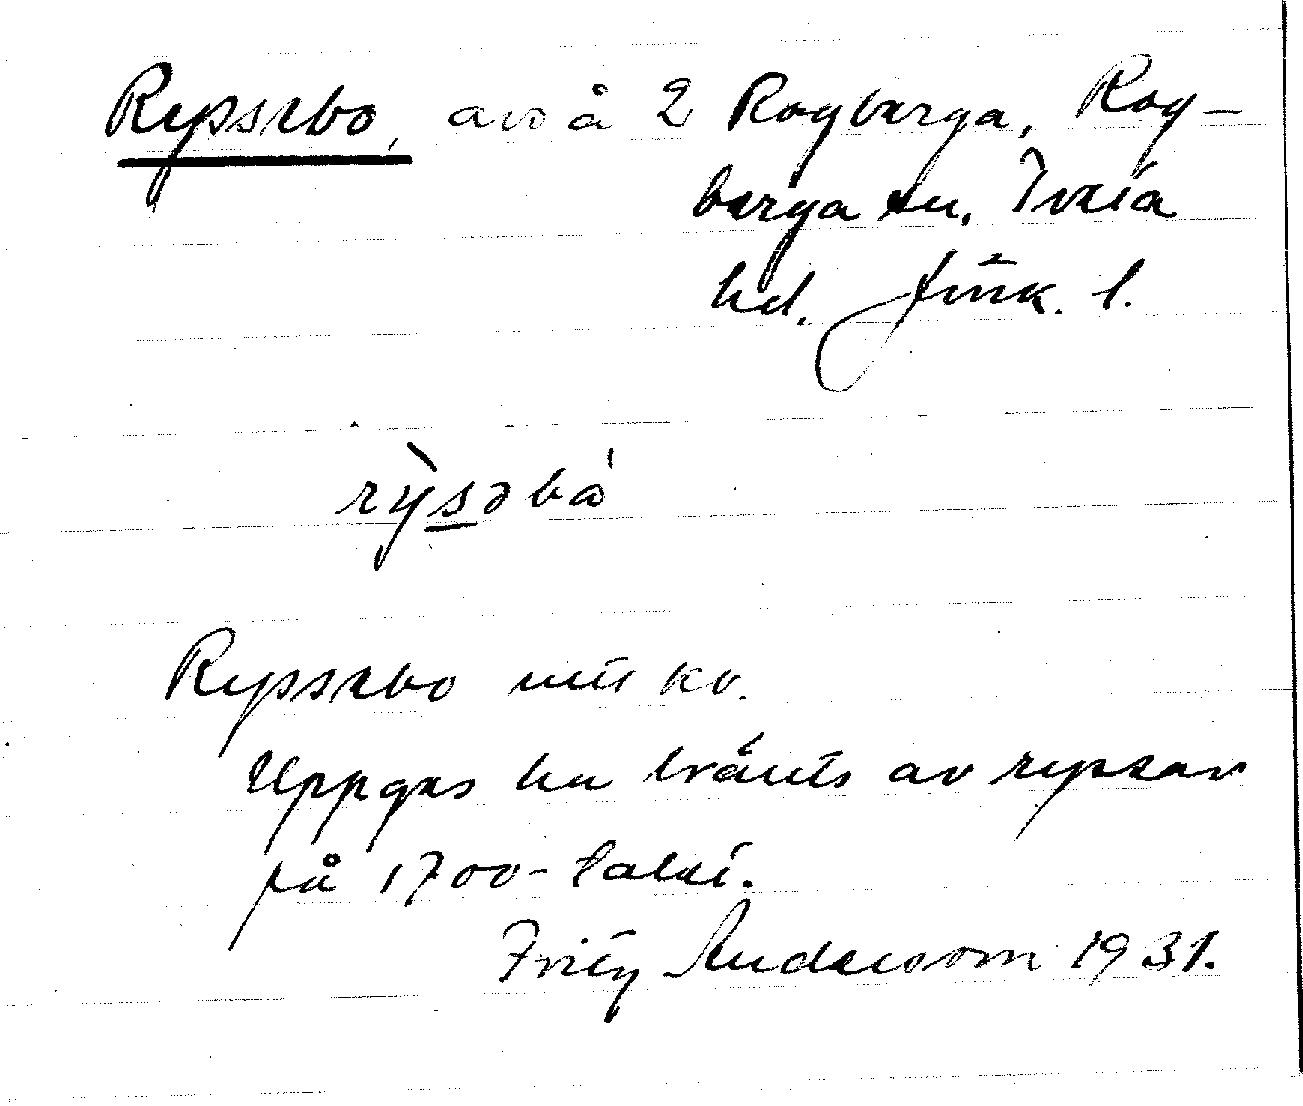 Ryssebo, avs å 2 Rogberga, Rog-
berga sn, Tveta
hd. Jönk. l.
rỳsəbå
Ryssebo mtr kv.
Uppges ha bränts av ryssar
på 1700-talet.
Fritz Anderson 1931.